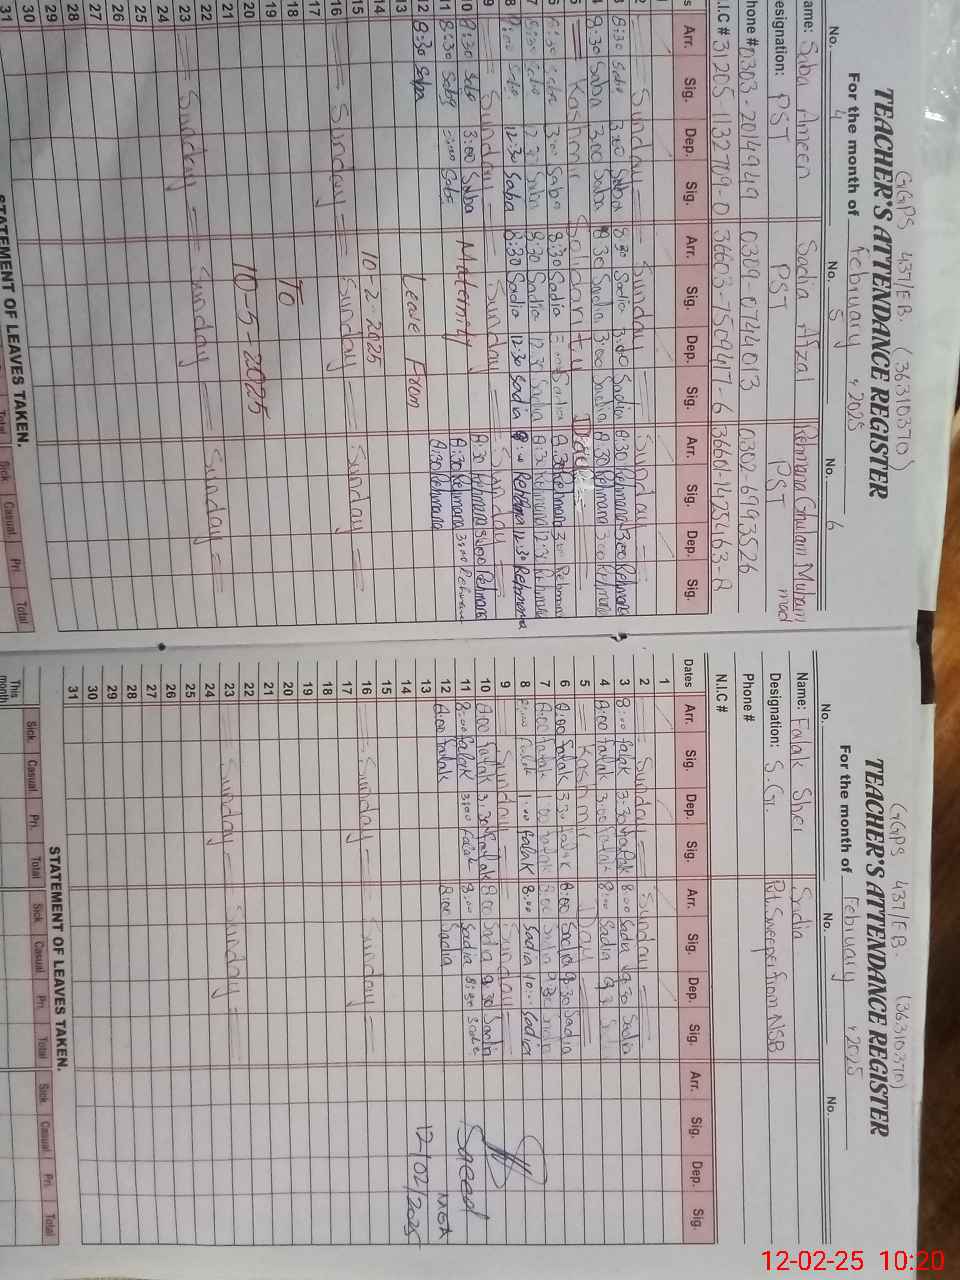 GGPS 437/EB. (36310370)
TEACHER'S ATTENDANCE REGISTER
For the month of February, 2025
No. 4 No. 5 No. 6
Name: Saba Ameen Sadia Afzal Rehmana Ghulam Muhammad
Designation: PST PST PST
Phone # 0303-2014949 0309-0744013 0302-6993526
N.I.C # 31205-1132709-0 36603-7509417-6 36601-1425463-8
Arr. Sig. Dep. Sig. Arr. Sig. Dep. Sig. Arr. Sig. Dep. Sig.
1
2 Sunday Sunday Sunday
3 8:30 Saba 3:00 Saba 8:30 Sadia 3:00 Sadia 8:30 Rehmana 3:00 Rehmana
4 8:30 Saba 3:00 Saba 8:30 Sadia 3:00 Sadia 8:30 Rehmana 3:00 Rehmana
5 Kashmir Solidarity Day
6 8:30 Saba 3:00 Saba 8:30 Sadia 3:00 Sadia 8:30 Rehmana 3:00 Rehmana
7 8:30 Saba 12:30 Saba 8:30 Sadia 12:30 Sadia 8:30 Rehmana 12:30 Rehmana
8 Saba 12:30 Saba 8:30 Sadia 12:30 Sadia Rehmana 12:30 Rehmana
9 Sunday Sunday Sunday
10 8:30 Saba 3:00 Saba Maternity 8:30 Rehmana 3:00 Rehmana
11 8:30 Saba 3:00 Saba 8:30 Rehmana 3:00 Rehmana
12 8:30 Saba Leave From 8:30 Rehmana
13
14 10-2-2025
15
16 Sunday Sunday Sunday
17
18 To
19
20 10-5-2025
21
22
23 Sunday Sunday Sunday
24
25
26
27
28
29
30
31
STATEMENT OF LEAVES TAKEN.
Total Sick Casual Pri. Total
GGPS 437/EB. (36310370)
TEACHER'S ATTENDANCE REGISTER
For the month of February, 2025
No. No. No.
Name: Falak Sher Sadia
Designation: S.G. Pvt. Sweeper from NSB
Phone #
N.I.C #
Dates Arr. Sig. Dep. Sig. Arr. Sig. Dep. Sig. Arr. Sig. Dep. Sig.
1
2 Sunday Sunday
3 8:00 falak 3:30 falak 8:00 Sadia 9:30 Sadia
4 8:00 falak 3:00 falak 8:00 Sadia
5 Kashmir Day
6 8:00 falak 3:30 falak 8:00 Sadia 9:30 Sadia
7 8:00 falak 1:00 falak 8:00 Sadia 9:30 Sadia
8 8:00 falak 1:00 falak 8:00 Sadia 10:00 Sadia
9 Sunday Sunday
10 8:00 falak 3:30 falak 8:00 Sadia 9:30 Sadia
11 8:00 falak 3:00 falak 8:00 Sadia 8:30 Sadia Saeed
12 8:00 falak 8:00 Sadia MEA
13 12/02/2025
14
15
16 Sunday Sunday
17
18
19
20
21
22
23 Sunday Sunday
24
25
26
27
28
29
30
31
STATEMENT OF LEAVES TAKEN.
Sick Casual Pri. Total Sick Casual Pri. Total Sick Casual Pri. Total
This month
12-02-25 10:20